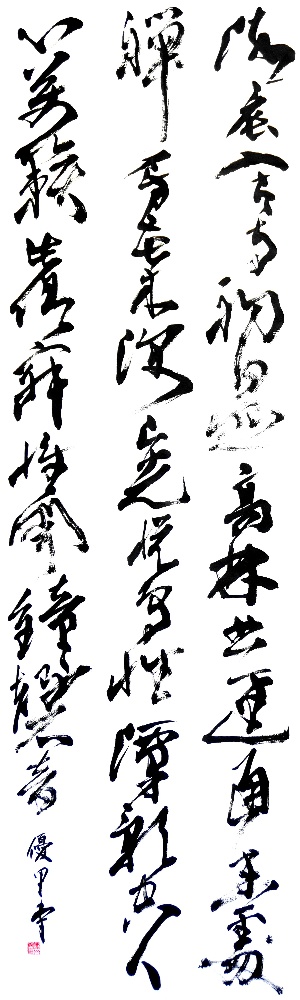 清晨入古寺初日照高林竹逕通幽處
禪房花木深山光悅鳥性潭影空人
心萬籟此俱寂惟聞鐘磬音